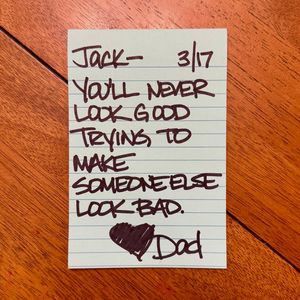 Jack- 3/17
YOU'LL NEVER
LOOK GOOD
TRYING TO
MAKE
SOMEONE ELSE
LOOK BAD.
Dad